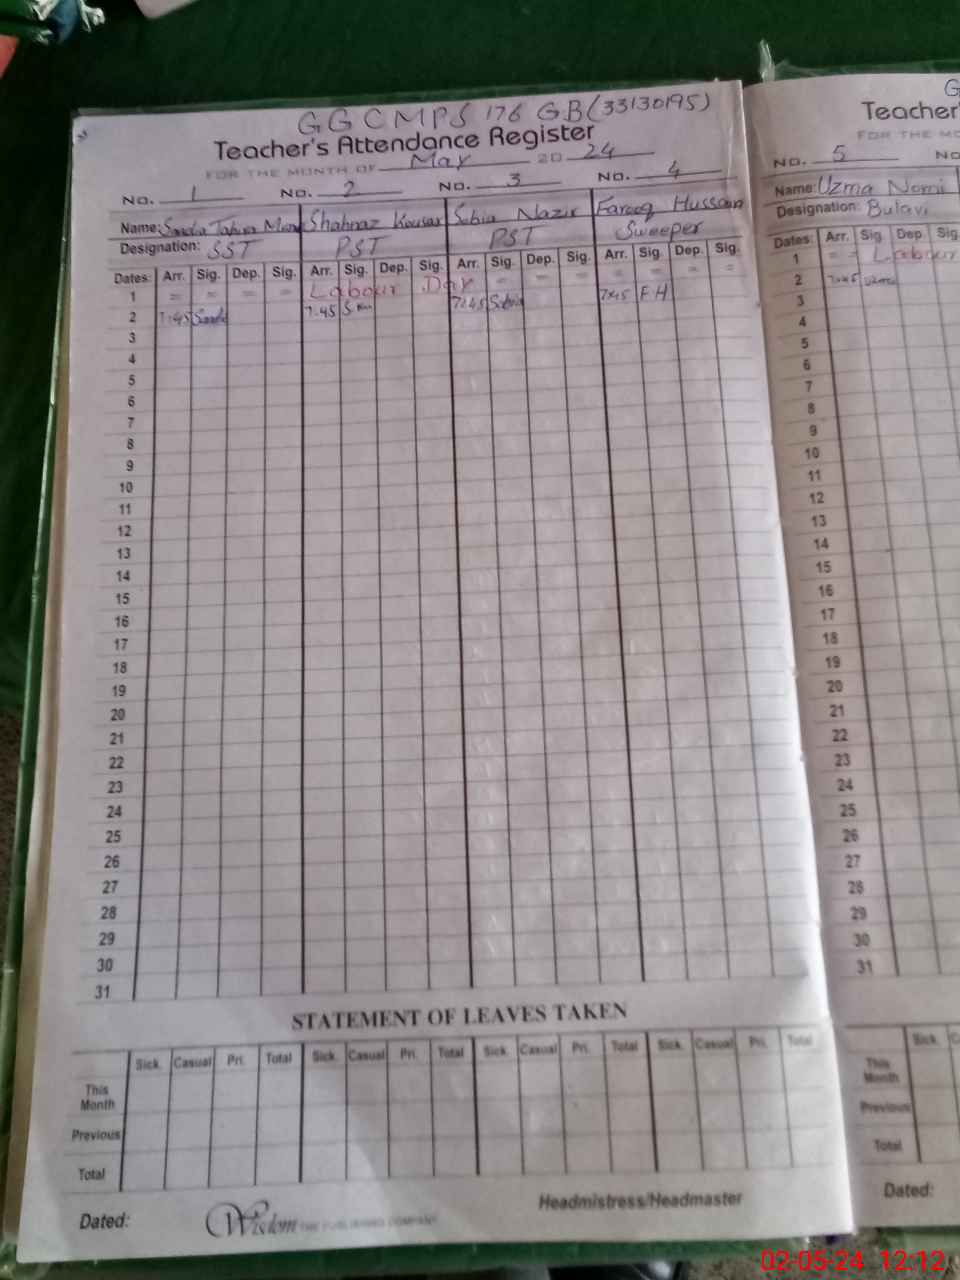 GGCMPS 176 GB (33130195)
Teacher's Attendance Register
FOR THE MONTH OF May 20 24
No. 1 No. 2 No. 3 No. 4
Name: Shahnaz Kousar Sobia Nazir Farooq Hussain
Designation: SST PST PST Sweeper
Dates: Arr. Sig. Dep. Sig. Arr. Sig. Dep. Sig. Arr. Sig. Dep. Sig. Arr. Sig. Dep. Sig.
1 = = = = Labour Day = = = = = = =
2 7:45 7:45 7:45 Sobia 7:45 F.H
3
4
5
6
7
8
9
10
11
12
13
14
15
16
17
18
19
20
21
22
23
24
25
26
27
28
29
30
31
STATEMENT OF LEAVES TAKEN
Sick. Casual Pri. Total Sick. Casual Pri. Total Sick. Casual Pri. Total Sick. Casual Pri. Total
This Month
Previous
Total
Dated: Wisdom THE PUBLISHING COMPANY Headmistress/Headmaster
G
Teacher'
FOR THE MO
No. 5 No
Name: Uzma Nomi
Designation: Bulavi
Dates: Arr. Sig. Dep. Sig.
1 = = Labour
2 7:45 Uzma
3
4
5
6
7
8
9
10
11
12
13
14
15
16
17
18
19
20
21
22
23
24
25
26
27
28
29
30
31
Sick. C
This Month
Previous
Total
Dated:
02-05-24 12:12